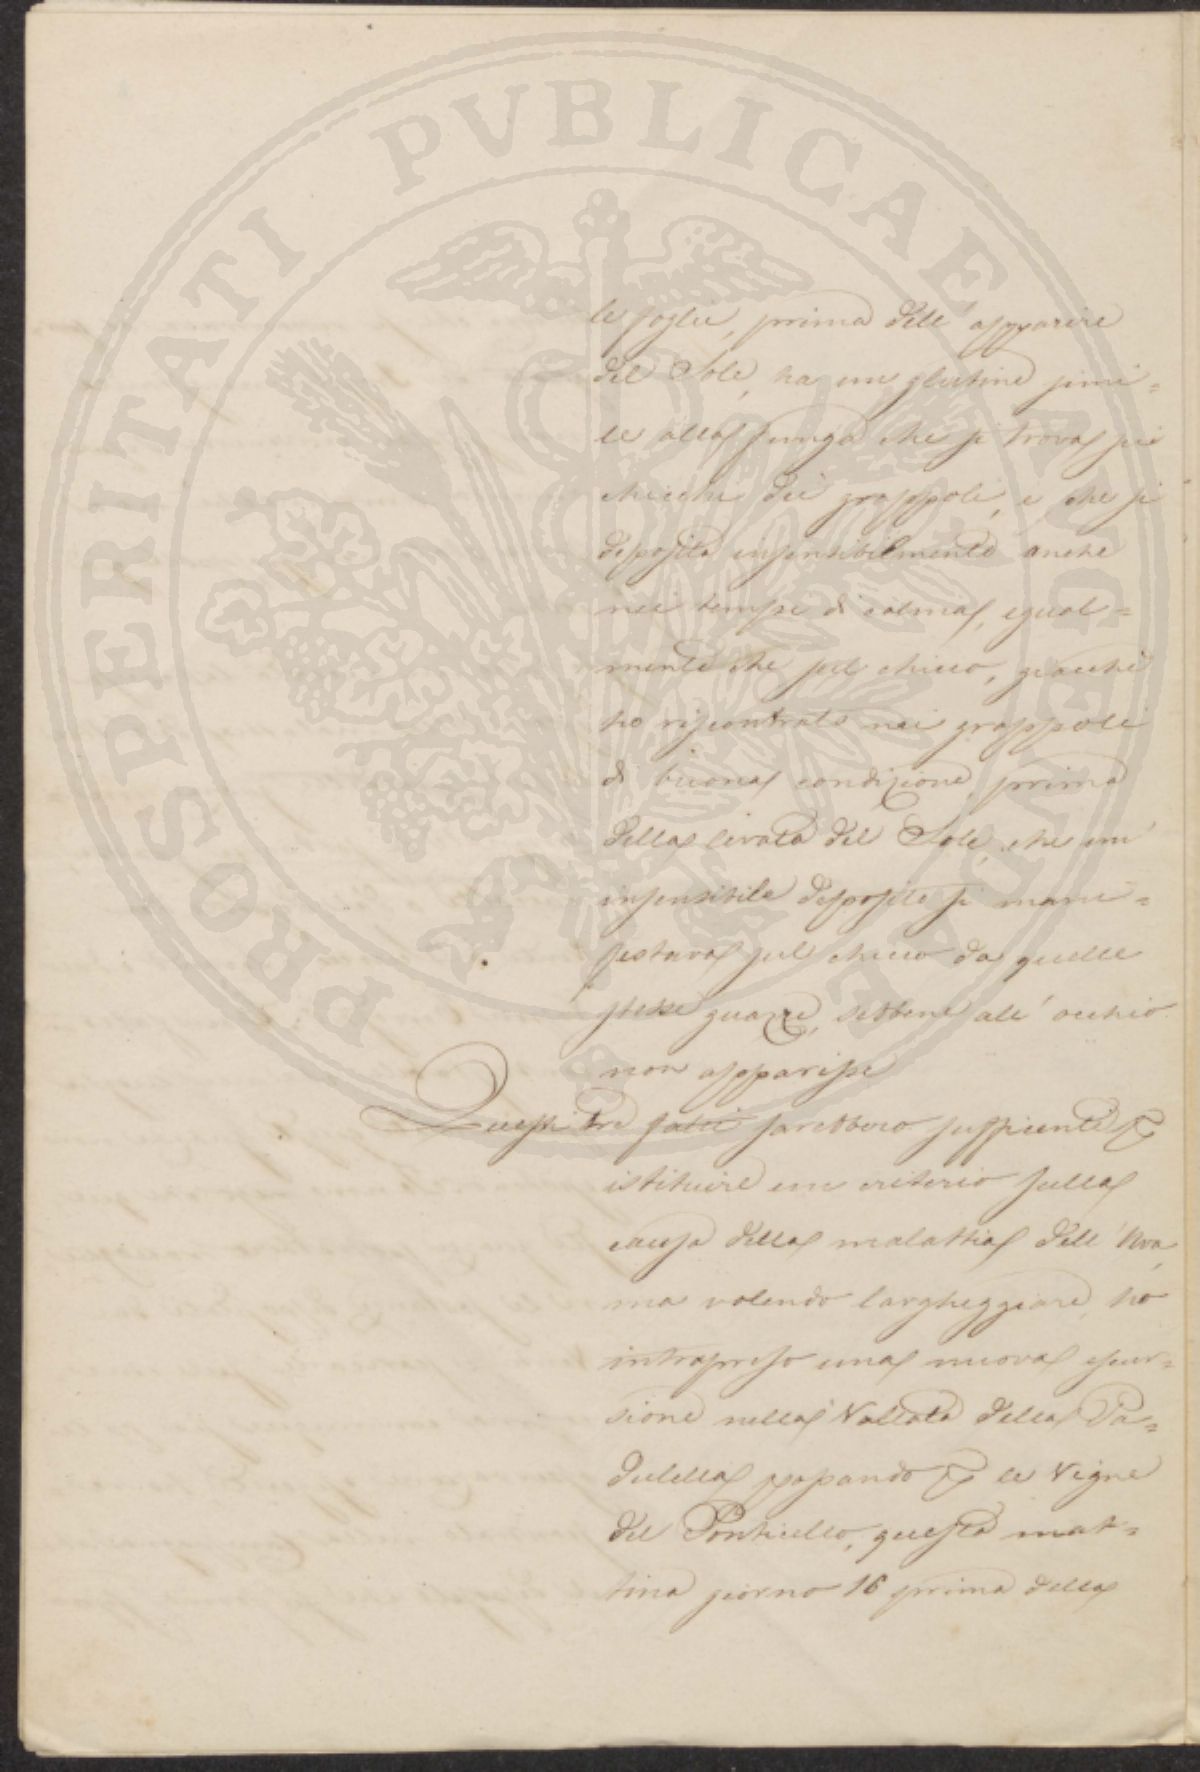 PROSPERITATI PVBLICAE AVGENDAE
le foglie, prima dell' apparire
del Sole, ha un glutine simi=
le alla funga che si trova sui
chicchi dei grappoli, e che si
deposita insensibilmente anche
nei tempi di calma, egual=
mente che sul chicco, giacchè
ho riscontrato nei grappoli
di buona condizione, prima
della levata del Sole, che un
insensibile deposito si mani=
festava sul chicco da quelle
stesse guazze, sebbene all' occhio
non apparisse
Questi tre fatti sarebbero sufficienti p
istituire un criterio sulla
causa della malattia dell' Uva,
ma volendo largheggiare, ho
intrapreso una nuova escur=
sione nella Vallata della Pa=
dulella passando p le Vigne
del Ponticello, questa mat=
tina giorno 16 prima della